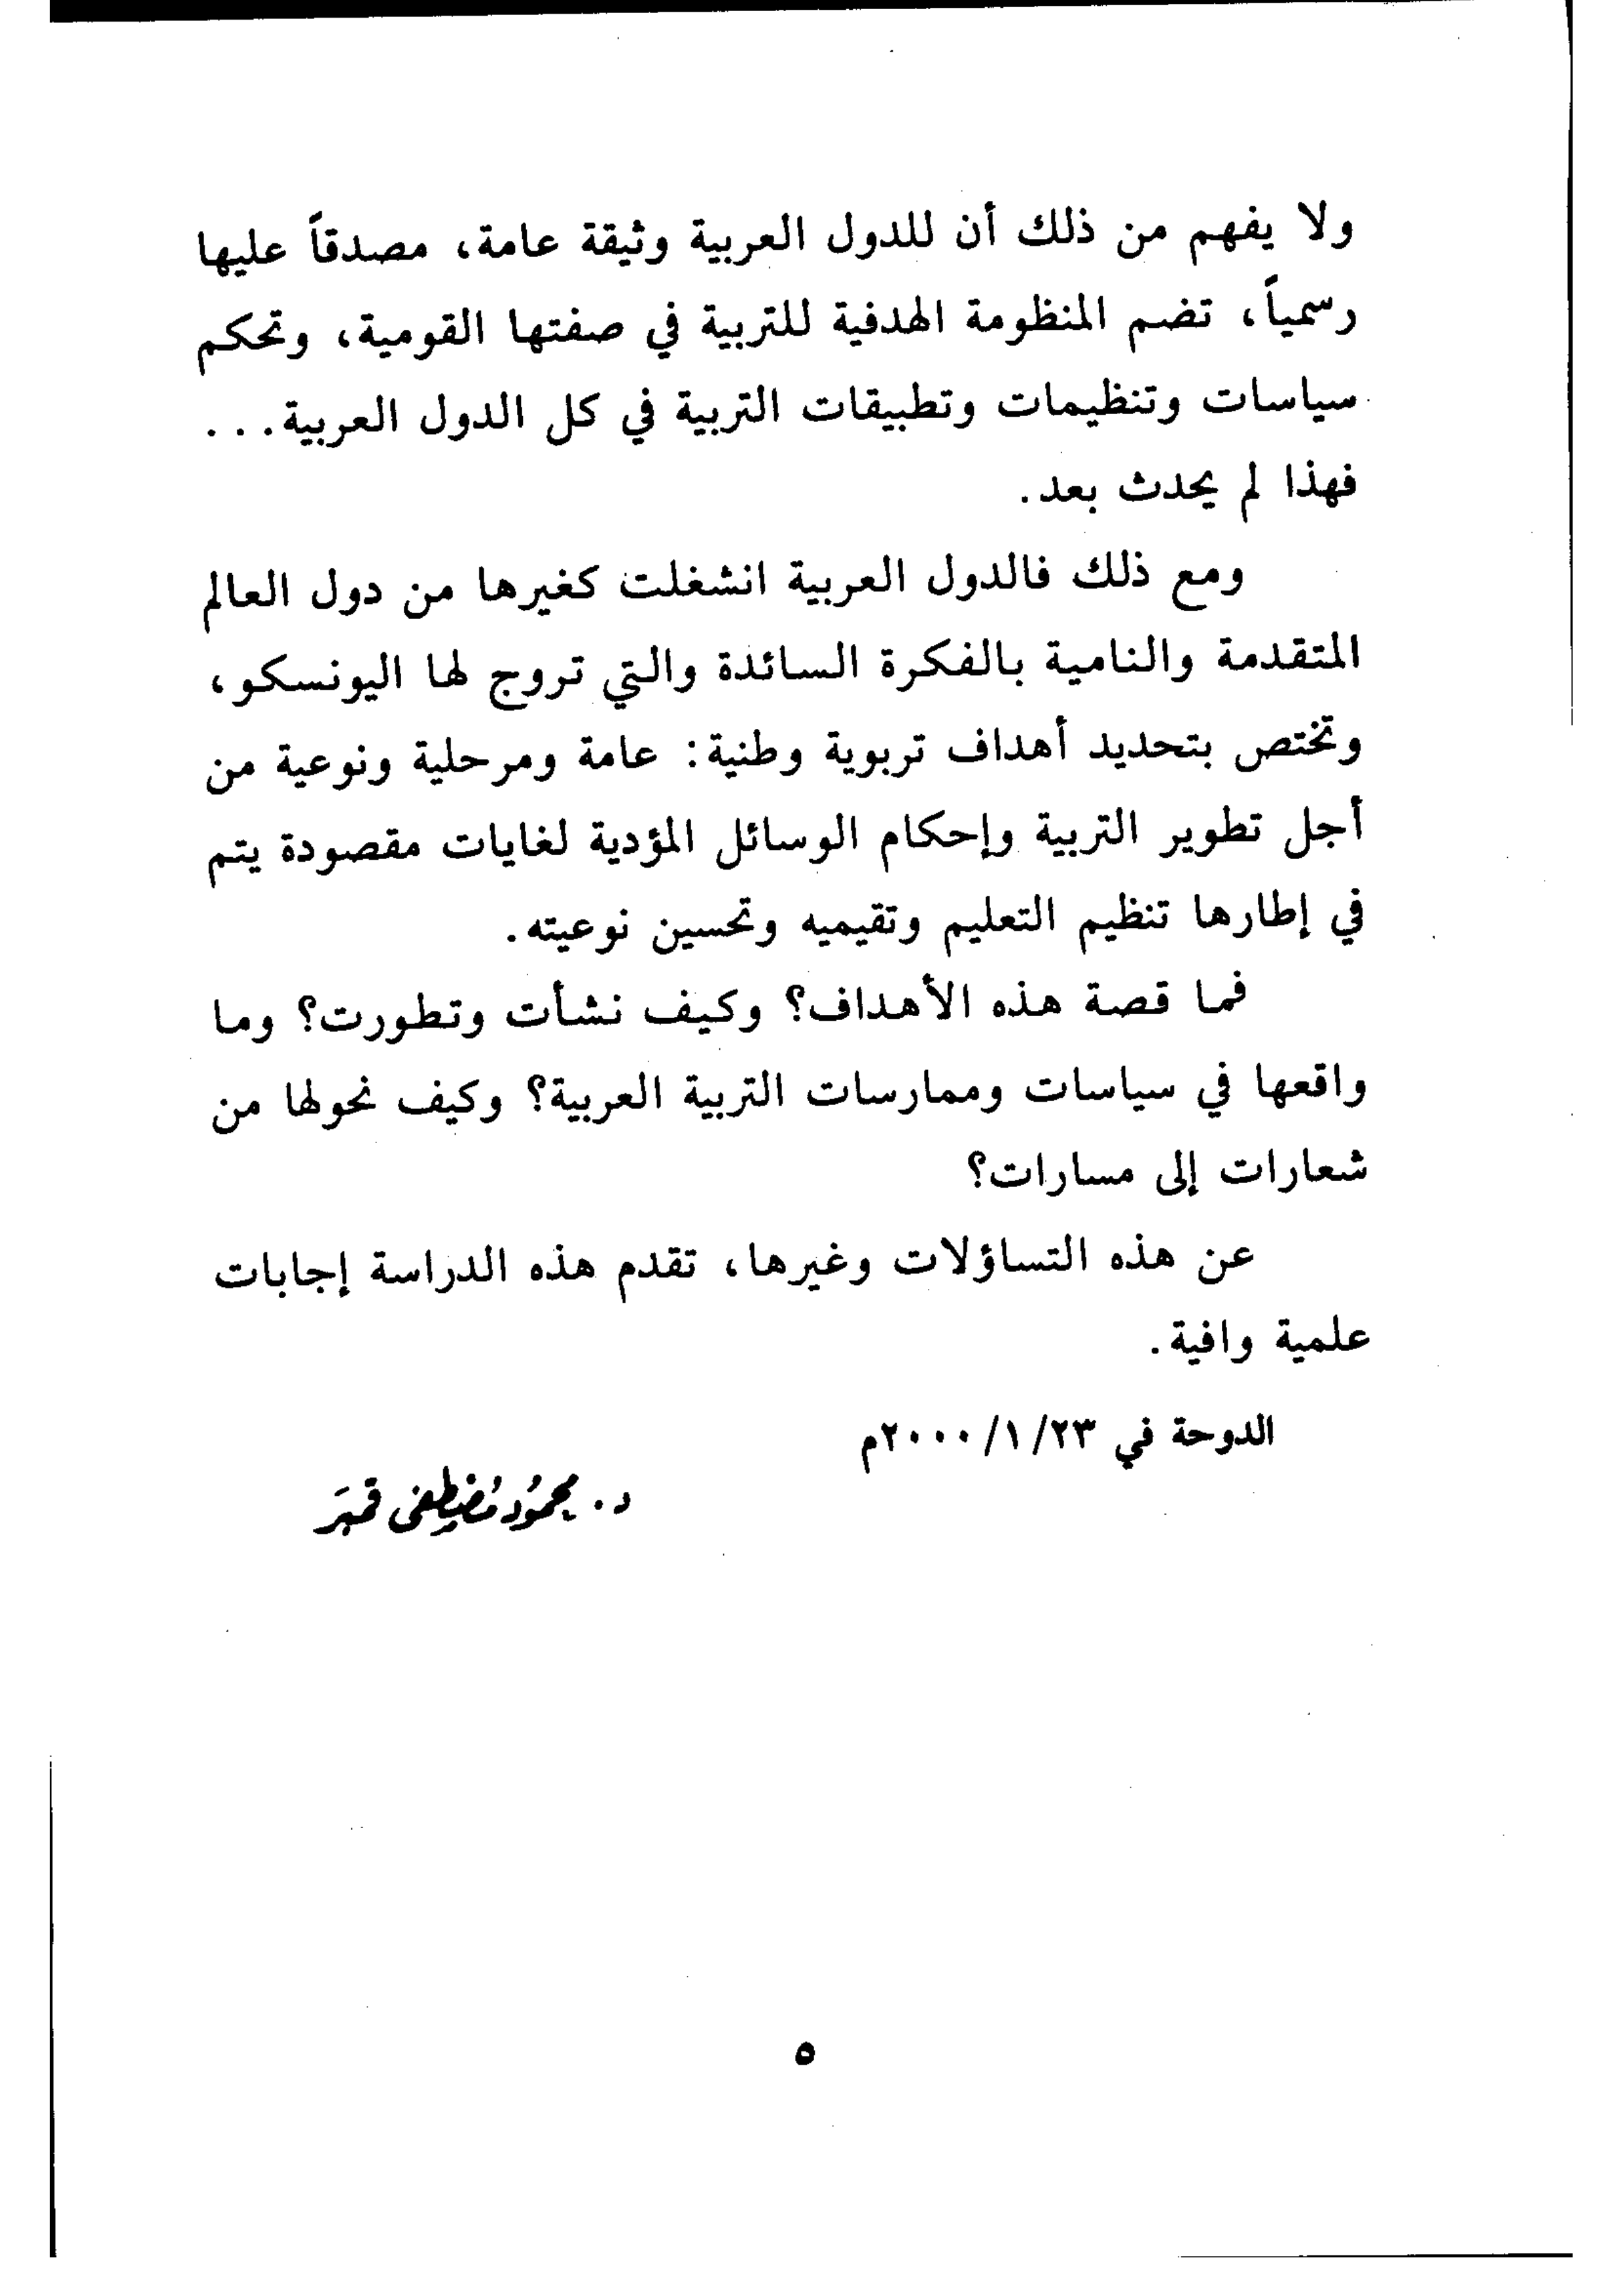 ولا يفهم من ذلك أن للدول العربية وثيقة عامة، مصدقاً عليها
رسمياً، تضم المنظومة الهدفية للتربية في صفتها القومية، وتحكم
سياسات وتنظيمات وتطبيقات التربية في كل الدول العربية...
فهذا لم يحدث بعد.
ومع ذلك فالدول العربية انشغلت كغيرها من دول العالم
المتقدمة والنامية بالفكرة السائدة والتي تروج لها اليونسكو،
وتختص بتحديد أهداف تربوية وطنية: عامة ومرحلية ونوعية من
أجل تطوير التربية وإحكام الوسائل المؤدية لغايات مقصودة يتم
في إطارها تنظيم التعليم وتقيميه وتحسين نوعيته.
فما قصة هذه الأهداف؟ وكيف نشأت وتطورت؟ وما
واقعها في سياسات وممارسات التربية العربية؟ وكيف نحولها من
شعارات إلى مسارات؟
عن هذه التساؤلات وغيرها، تقدم هذه الدراسة إجابات
علمية وافية.
الدوحة في ٢٣/١/٢٠٠٠م
د. محمُود مُصْطفى قمبَر
٥